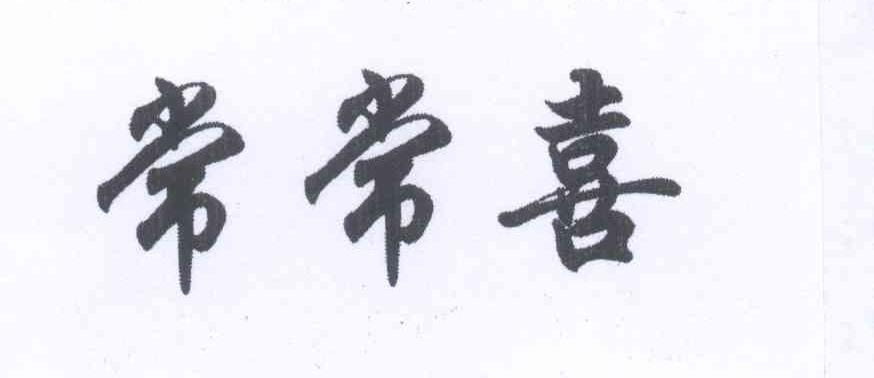 常常喜